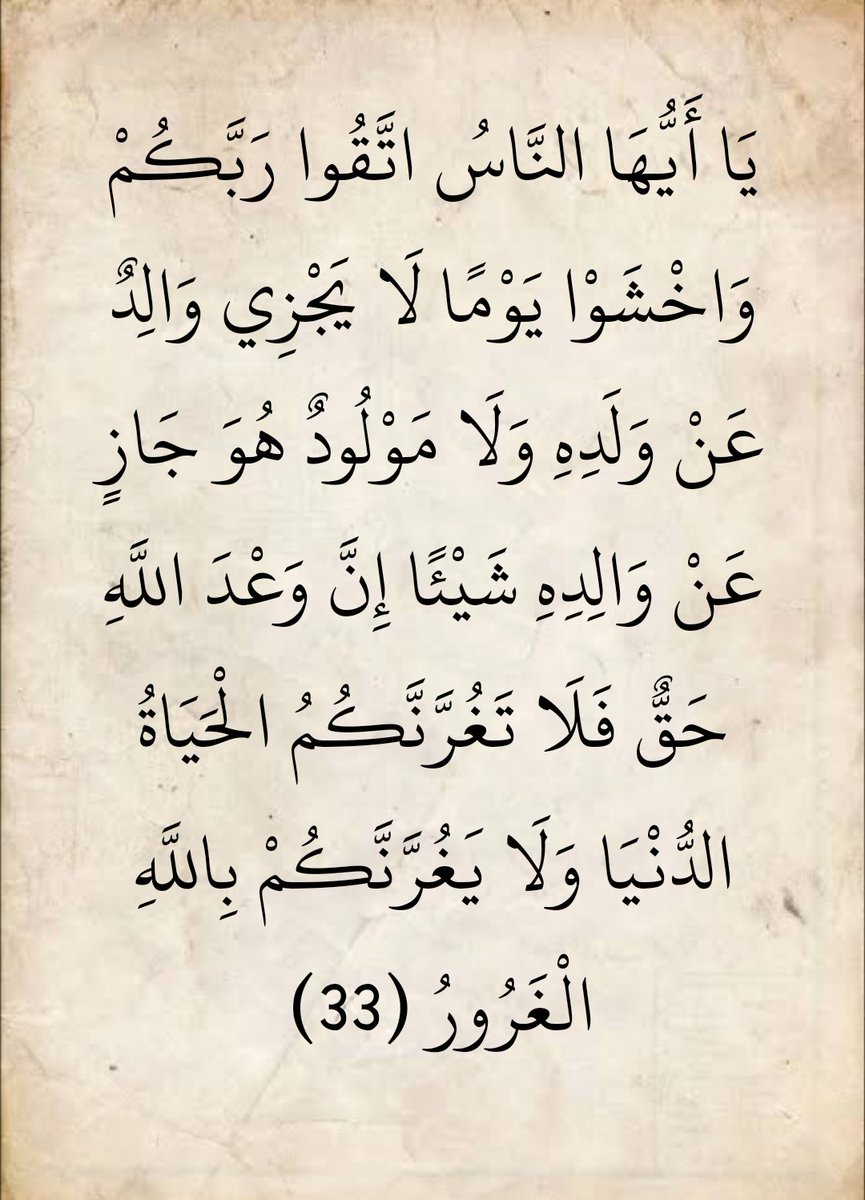 يَا أَيُّهَا النَّاسُ اتَّقُوا رَبَّكُمْ
وَاخْشَوْا يَوْمًا لَا يَجْزِي وَالِدٌ
عَنْ وَلَدِهِ وَلَا مَوْلُودٌ هُوَ جَازٍ
عَنْ وَالِدِهِ شَيْئًا إِنَّ وَعْدَ اللَّهِ
حَقٌّ فَلَا تَغُرَّنَّكُمُ الْحَيَاةُ
الدُّنْيَا وَلَا يَغُرَّنَّكُمْ بِاللَّهِ
الْغَرُورُ (33)